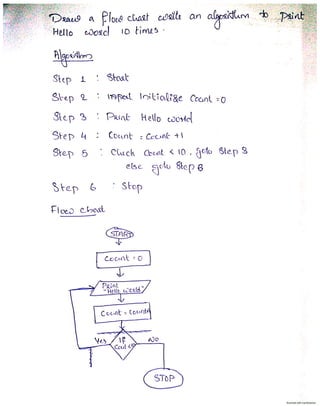 Draw a flow chart write an algorithm to print
Hello world 10 times.
Algorithm
Step 1 : Start
Step 2 : input Initialize Count =0
Step 3 : Print Hello world
Step 4 : Count = Count +1
Step 5 : Check Count < 10, goto Step 3
else goto Step 6
Step 6 : Stop
Flow chart
START
Count = 0
Print
"Hello world"
Count = Count+
Yes
If
No
STOP